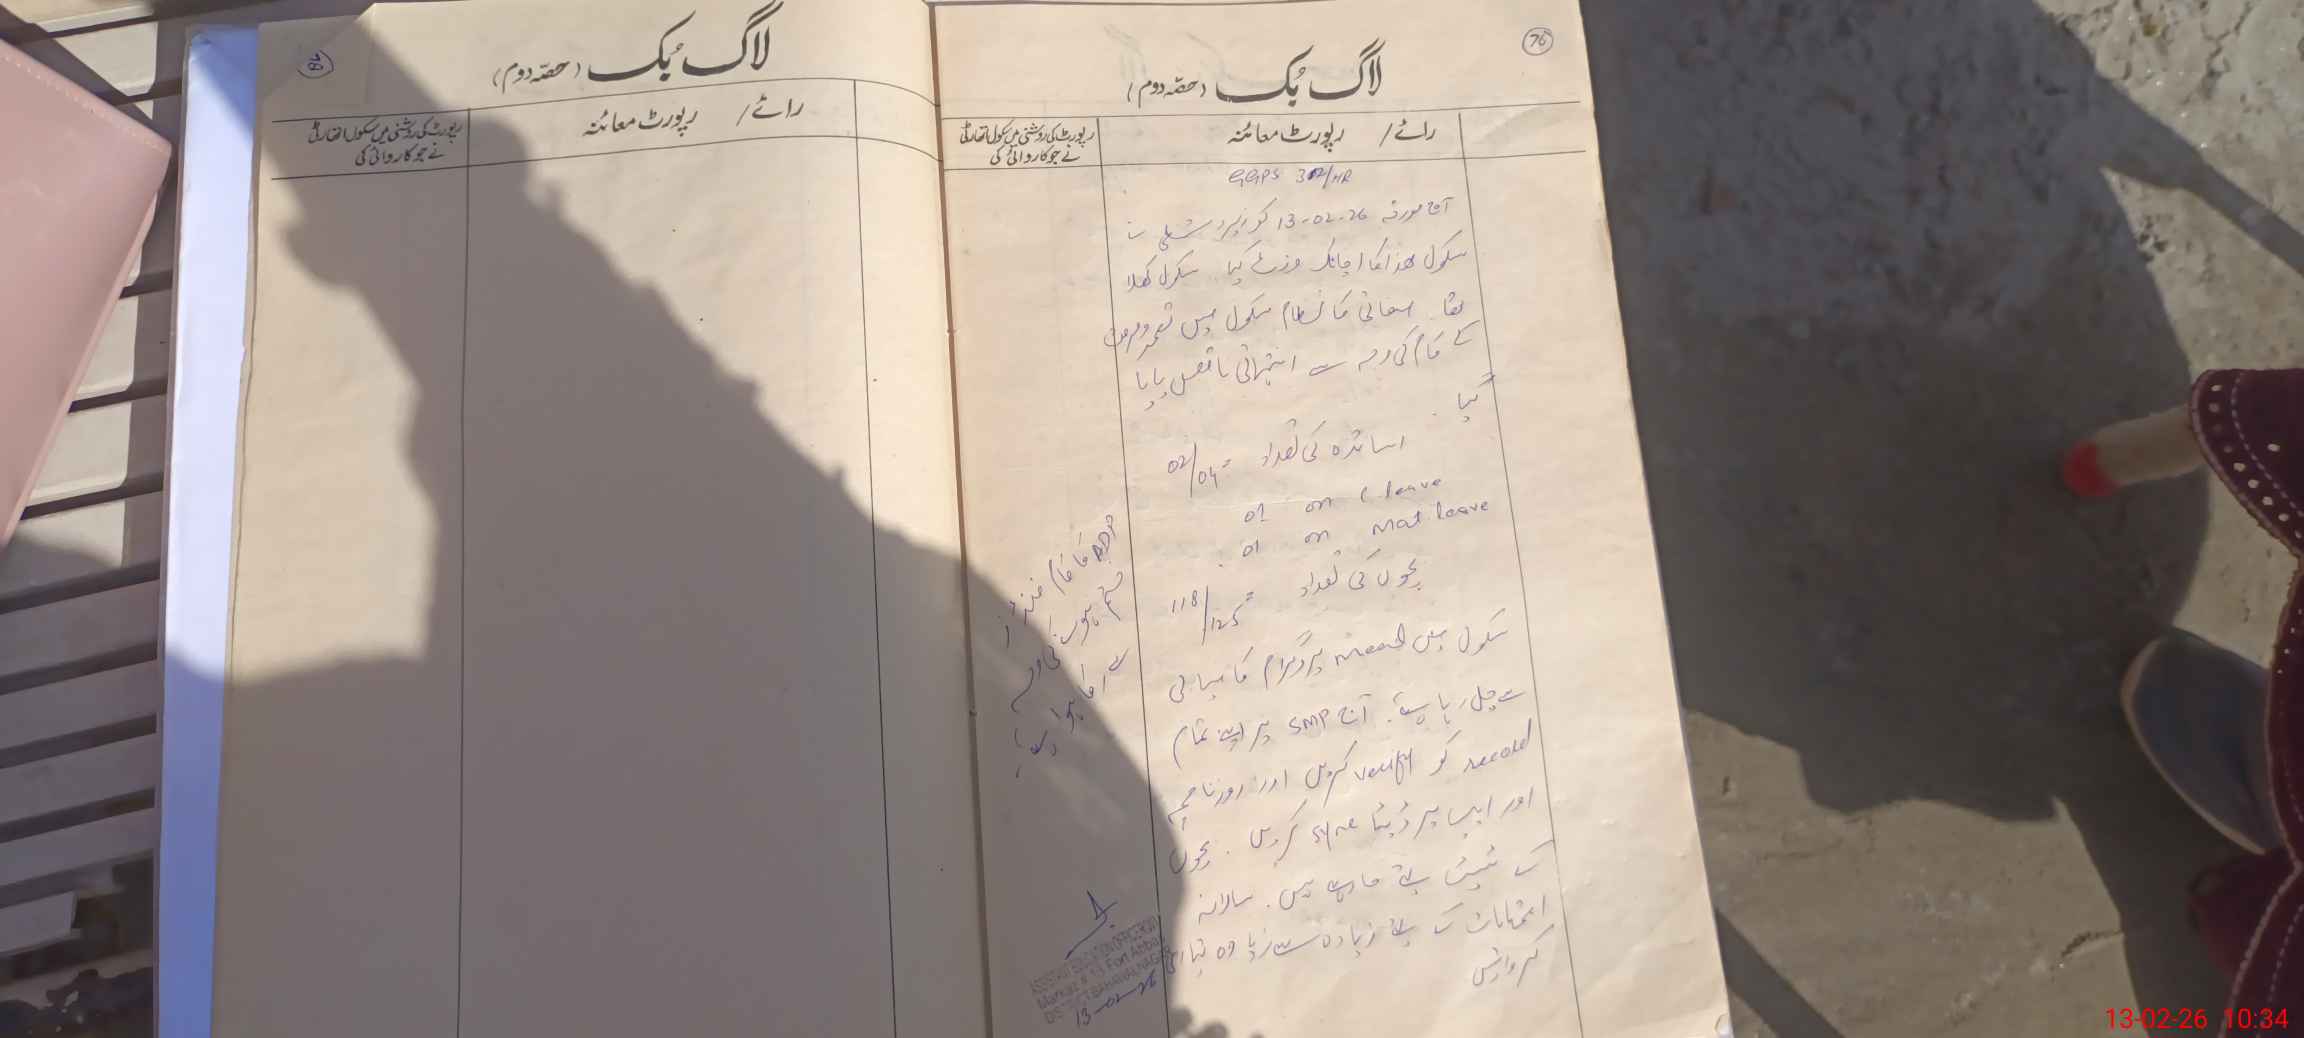 76
لاگ بک (حصہ دوم)
رائے / رپورٹ معائنہ
رپورٹ کی روشنی میں سکول اتھارٹی
نے جو کاروائی کی
GGPS 302/HR
آج مورخہ 13-02-26 کو زیر دستخطی نے
سکول ھذا کا اچانک وزٹ کیا۔ سکول کھلا
تھا۔ صفائی کا نظام سکول میں تعمیر و مرمت
کے کام کی وجہ سے انتہائی ناقص پایا
گیا۔
اساتذہ کی تعداد = 02/04
01 on C leave
01 on Mat leave
بچوں کی تعداد = 118/125
سکول میں meal پروگرام کامیابی
سے چل رہا ہے۔ آج SMP پر اپنے تمام
record کو verify کریں اور روزنامچہ
اور ایپ پر ڈیٹا sync کریں۔ بچوں
کے ٹیسٹ لئے جا رہے ہیں۔ سالانہ
امتحانات کے لئے زیادہ سے زیادہ تیاری
کروائیں
کا کام فنڈز
ختم ہونے کی وجہ
سے رکا ہوا ہے۔
ASSISTANT EDUCATION OFFICER
Markaz # 13 Fort Abbas
DISTRICT BAHAWALNAGAR
13-02-26
78
لاگ بک (حصہ دوم)
رائے / رپورٹ معائنہ
رپورٹ کی روشنی میں سکول اتھارٹی
نے جو کاروائی کی
13-02-26 10:34